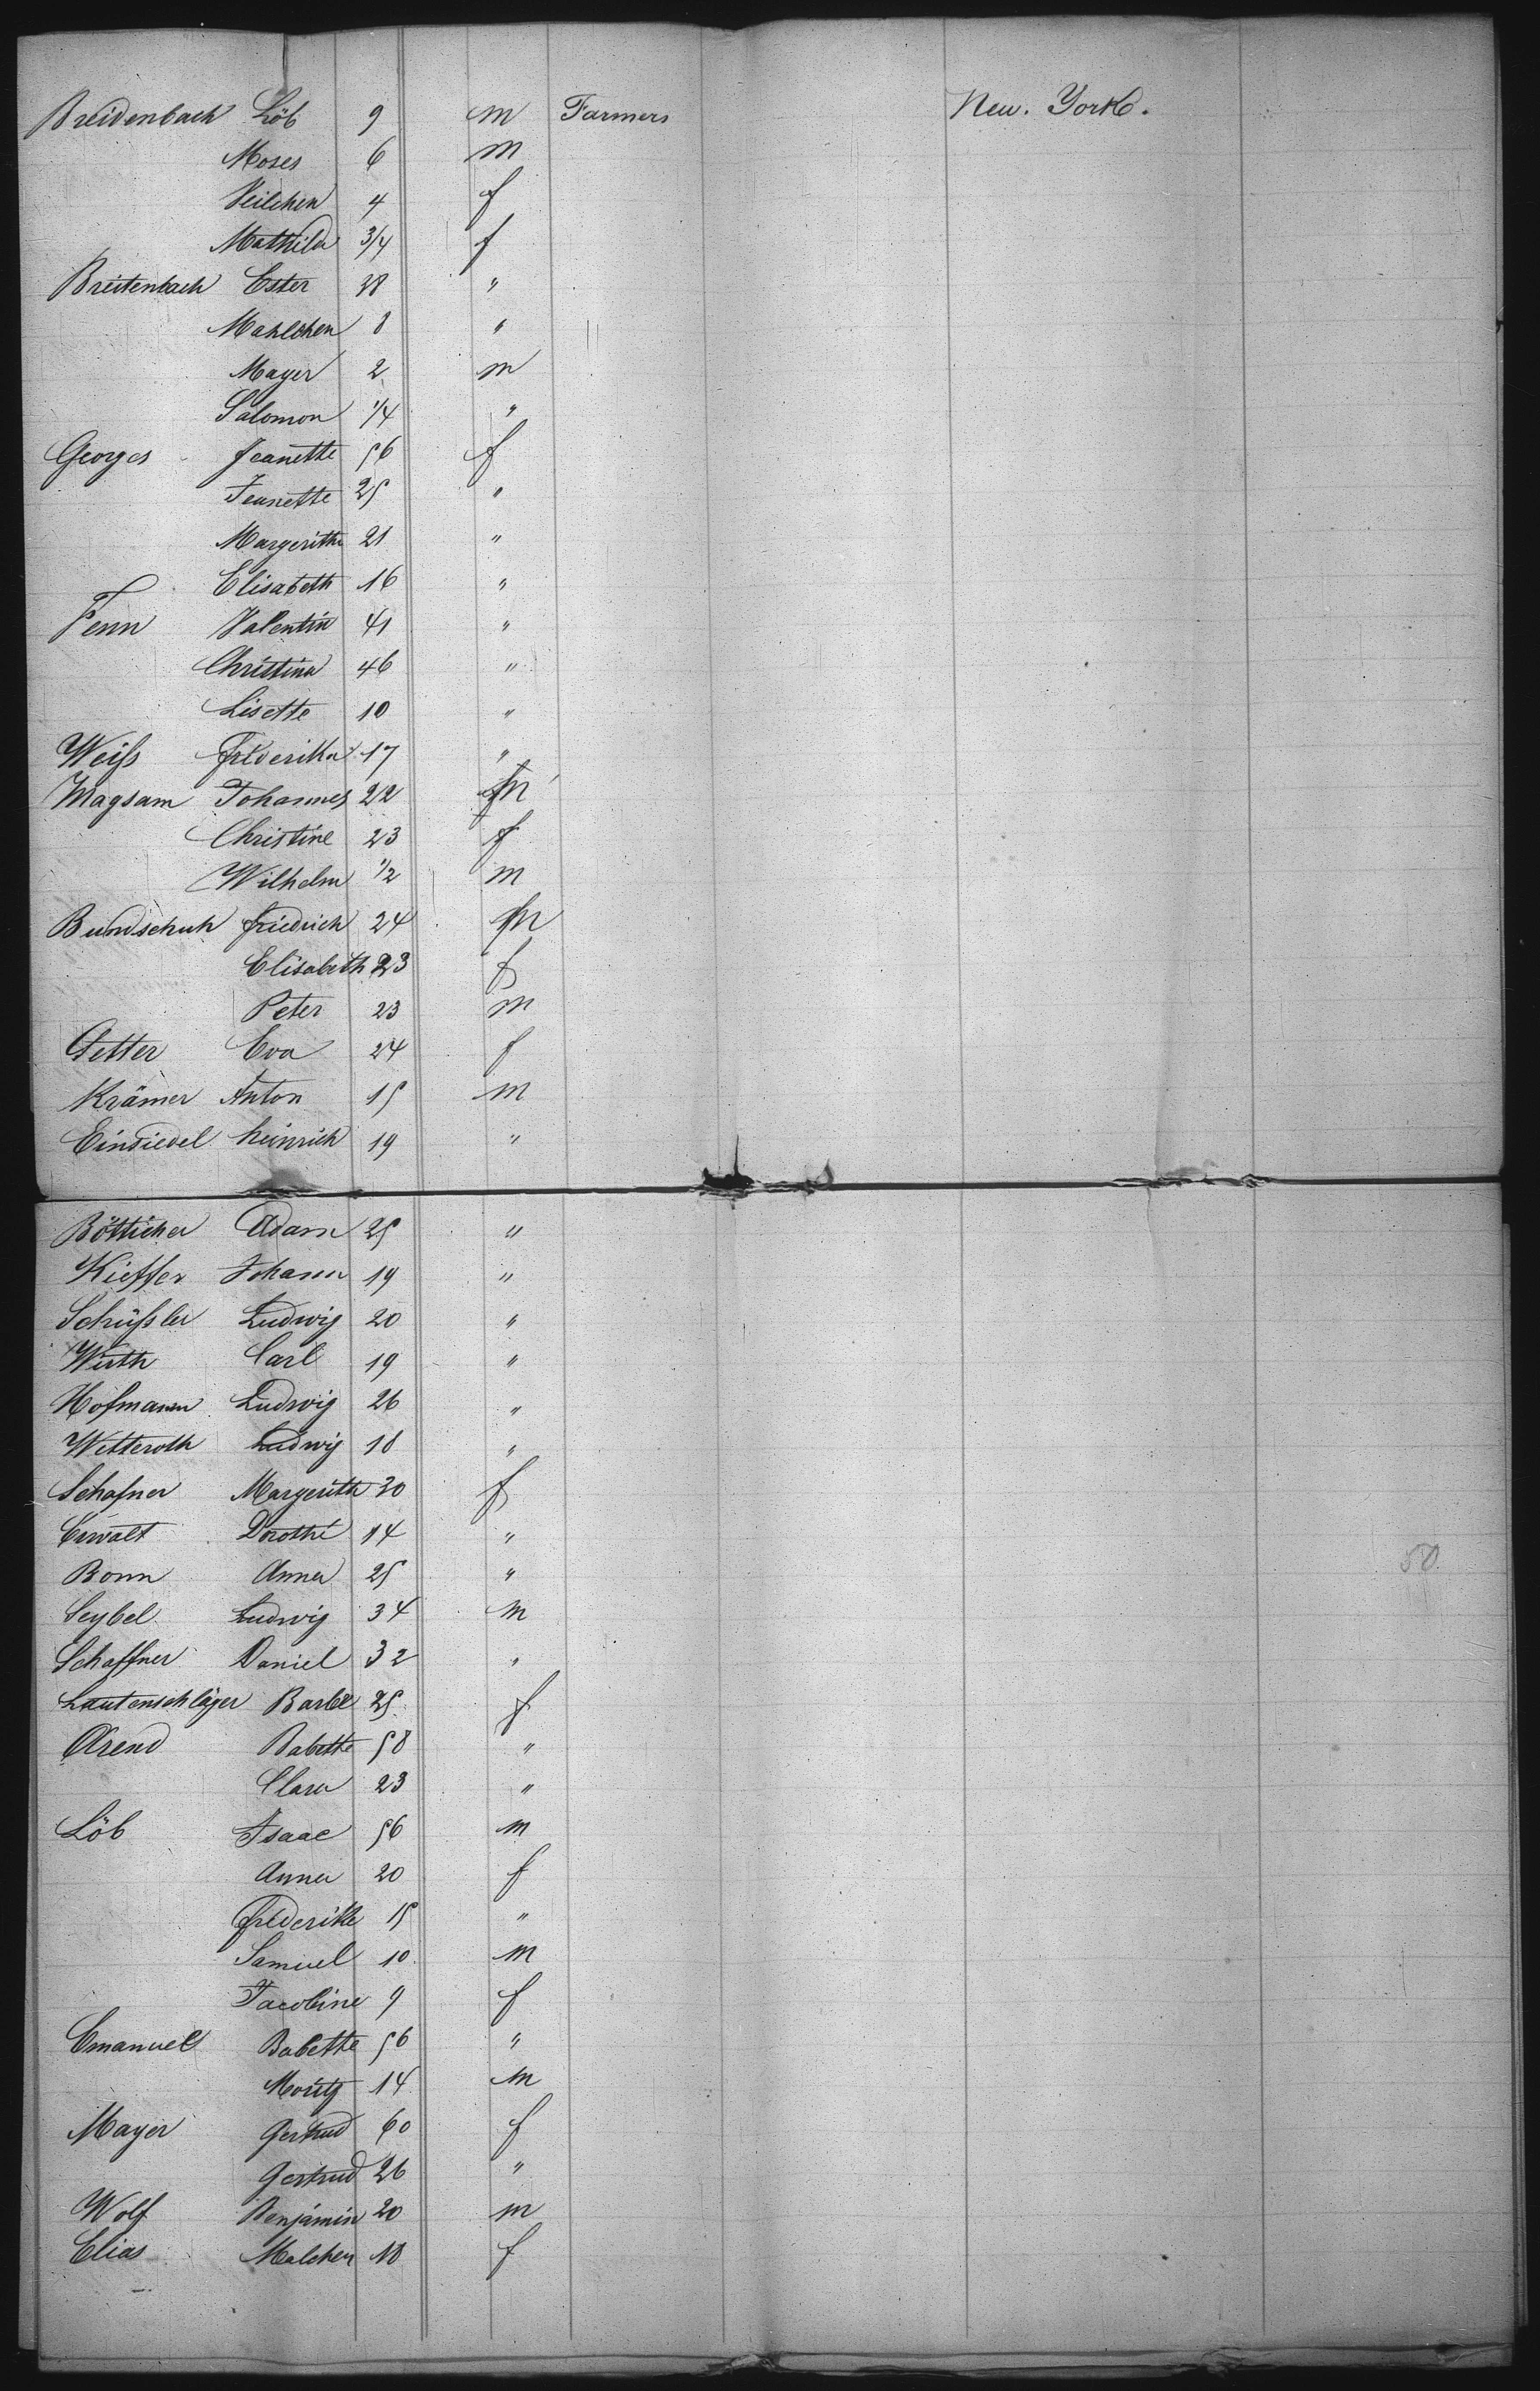 Breidenbach Löb 9 m Farmers New. York.
Moses 6 m
Veilchen 4 f
Mathilde 3/4 f
Breitenbach Ester 38 "
Mahlchen 8 "
Mayer 2 m
Salomon 1/4 "
Georges Jeanette 56 f
Jeanette 25 "
Margerithe 21 "
Elisabeth 16 "
Fenn Valentin 41 "
Christina 46 "
Lisette 10 "
Weiß Frederika 17 "
Magsam Johannes 22 m
Christine 23 f
Wilhelm 1/2 m
Bundschuh friedrich 24 m
Elisabeth 23 f
Peter 23 m
Eva 24 f
Krämer Anton 15 m
Einsiedel heinrich 19 "
Bötticher Adam 25 "
Kieffer Johann 19 "
Schüßler Ludwig 20 "
Wirth Carl 19 "
Hofmann Ludwig 26 "
Wetteroth Ludwig 18 "
Schafner Margerith 30 f
Dorothé 14 "
Bonn Anna 25 "
Seybel Ludwig 34 m
Schaffner Daniel 32 "
Lautenschläger Barbe 25 f
Arend Babette 58 "
Clara 23 "
Löb Isaac 56 m
Anna 20 f
frederike 15 "
Samuel 10 m
Jacobine 9 f
Emanuel Babette 56 "
Moritz 14 m
Mayer Gertrud 60 f
Gertrud 26 "
Wolf Benjamin 20 m
Elias Malchen 18 f
50